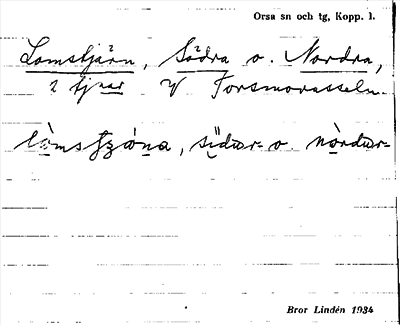 Orsa sn och tg, Kopp. l.
Lomstjärn, Södra o. Nordra,
2 tjnar V Torsmorasseln.
sı̤dur- o. nòrdur-
Bror Lindén 1934